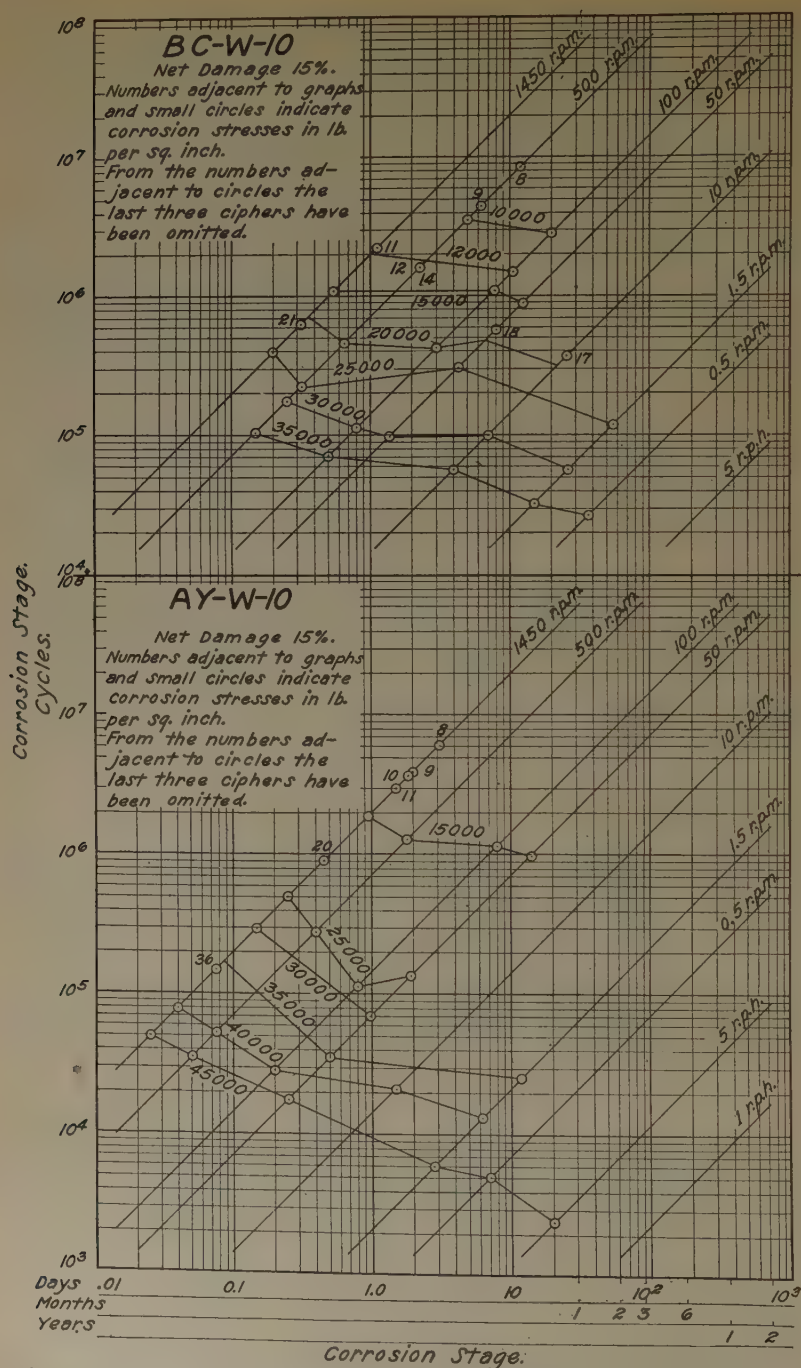 10⁸
BC-W-10
Net Damage 15%.
Numbers adjacent to graphs
and small circles indicate
corrosion stresses in lb.
per sq. inch.
From the numbers ad-
jacent to circles the
last three ciphers have
been omitted.
1450 r.p.m.
500 r.p.m.
100 r.p.m.
50 r.p.m.
10 r.p.m.
1.5 r.p.m.
0.5 r.p.m.
5 r.p.h.
10⁷
8
9
10000
11
12000
12
14
15000
10⁶
21
20000
18
17
25000
30000
10⁵
35000
10⁴
10⁸
AY-W-10
Net Damage 15%.
Numbers adjacent to graphs
and small circles indicate
corrosion stresses in lb.
per sq. inch.
From the numbers ad-
jacent to circles the
last three ciphers have
been omitted.
1450 r.p.m.
500 r.p.m.
100 r.p.m.
50 r.p.m.
10 r.p.m.
1.5 r.p.m.
0.5 r.p.m.
5 r.p.h.
1 r.p.h.
10⁷
8
9
10
11
15000
10⁶
20
25000
30000
36
35000
10⁵
40000
45000
10⁴
10³
Corrosion Stage.
Cycles.
Days .01 0.1 1.0 10 10² 10³
Months 1 2 3 6
Years 1 2
Corrosion Stage.